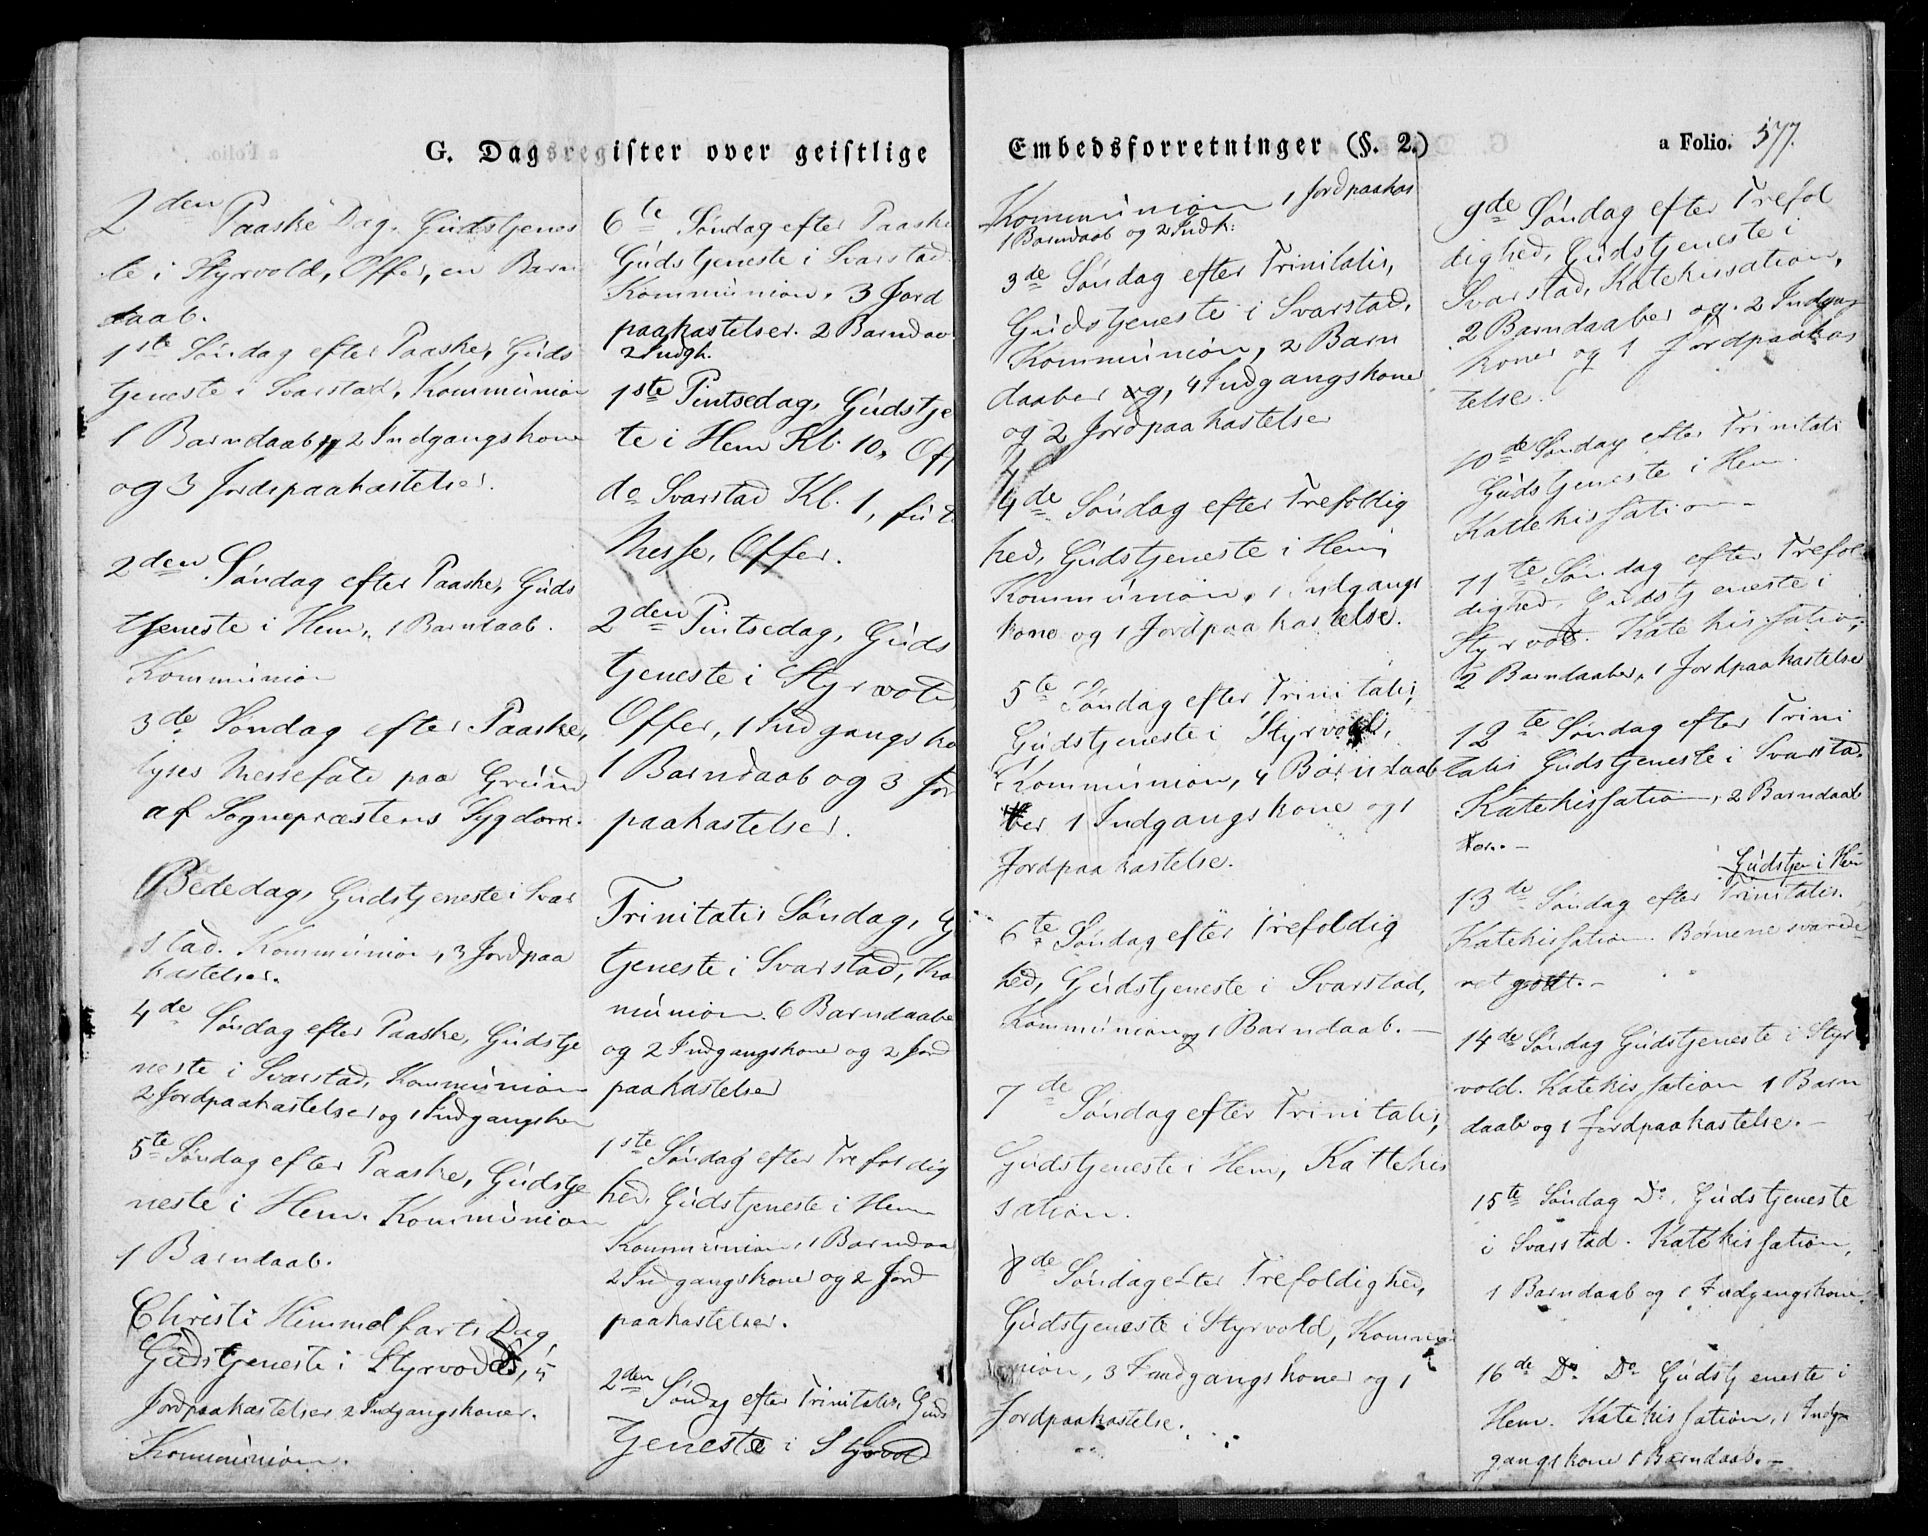 G. Dagsregister over geistlige
2den Paaske Dag. Gudstjenes
te i Styrvold, Offer, en Barn
daab.
1ste Søndag efter Paaske, Guds
tjeneste i Svarstad, Kommunion
1 Barndaab, 2 Indgangskone
og 3 Jordspaakastelser.
2den Søndag efter Paaske, Guds
tjeneste i Hem, 1 Barndaab.
Kommunion
3de Søndag efter Paaske,
lyses Messefald paa Grund
af Sognepræstens Sygdom.
Bededag, Gudstjeneste i Svar
stad. Kommunion, 3 Jordpaa
kastelser.
4de Søndag efter Paaske, Gudstje
neste i Svarstad, Kommunion
2 Jordpaakastelser og 1 Indgangskon
5te Søndag efter Paaske, Gudstje
neste i Hem. Kommunion
1 Barndaab.
Christi Himmelfarts Dag,
Gudstjeneste i Styrvold, 5
Jordpaakastelser 2 Indgangskoner.
Kommunion.
6te Søndag efter Paaske
Gudstjeneste i Svarstad.
Kommunion, 3 Jord
paakastelser. 2 Barndaa
2 Indgk.
1ste Pintsedag, Gudstje
te i Hem Kl. 10, Off
do Svarstad Kl. 1,
Messe, Offer.
2den Pintsedag, Guds
tjeneste i Styrvold
Offer, 1 Indgangsko
1 Barndaab og 3 Jor
paakastelser.
Trinitatis Søndag, G
tjeneste i Svarstad, Ko
munion. 6 Barndaabe
og 2 Indgangskoner og 2 Jord
paakastelser
1ste Søndag efter Trefoldig
hed, Gudstjeneste i Hem
Kommunion, 1 Barndaa
2 Indgangskoner og 2 Jord
paakastelser.
2den Søndag efter Trinitatis, Guds
tjeneste i Styrvold
Embedsforretninger (§. 2.)
a Folio. 577.
Kommunion 1 Jordpaakas
1 Barndaab og 2 Indk:
3de Søndag efter Trinitatis,
Gudstjeneste i Svarstad,
Kommunion, 2 Barn
daaber og, 4 Indgangskoner
og 2 Jordpaakastelser
4de Søndag efter Trefoldig
hed, Gudstjeneste i Hem
Kommunion, 1 Indgangs
kone og 1 Jordpaakastelse.
5te Søndag efter Trinitatis,
Gudstjeneste i Styrvold,
Kommunion, 4 Barndaab
ber 1 Indgangskone og 1
Jordpaakastelse.
6te Søndag efter Trefoldig
hed, Gudstjeneste i Svarstad,
Kommunion og 1 Barndaab. —
7de Søndag efter Trinitatis,
Gudstjeneste i Hem, Kattekis
sation.
8de Søndag efter Trefoldighed,
Gudstjeneste i Styrvold, Kommu
nion, 3 Indgangskoner og 1
Jordpaakastelse.
9de Søndag efter Trefol
dighed, Gudstjeneste i
Svarstad, Katekissation,
2 Barndaaber og 2 Indgangs
koner og 1 Jordpaakas
telse.
10de Søndag efter Trinitatis
Gudstjeneste i Hem.
Kattekissation —
11te Søndag efter Trefol
dighed, Gudstjeneste i
Styrvold. Katekissation,
2 Barndaaber, 1 Jordpaakastelse
12te Søndag efter Trini
tatis Gudstjeneste i Svarstad.
Katekissation, 2 Barndaab
ber. —
Gudstjen i Hem
13de Søndag efter Trinitatis.
Katekissation. Børnene svarede
ret godt. —
14de Søndag Gudstjeneste i Styr
vold. Katekissation 1 Barn
daab og 1 Jordpaakastelse. —
15te Søndag Do. Gudstjeneste
i Svarstad. Katekissation,
1 Barndaab og 1 Indgangskone.
16de Do Do Gudstjeneste i
Hem. Katekissation, 1 Indg
gangskone 1 Barndaab. —